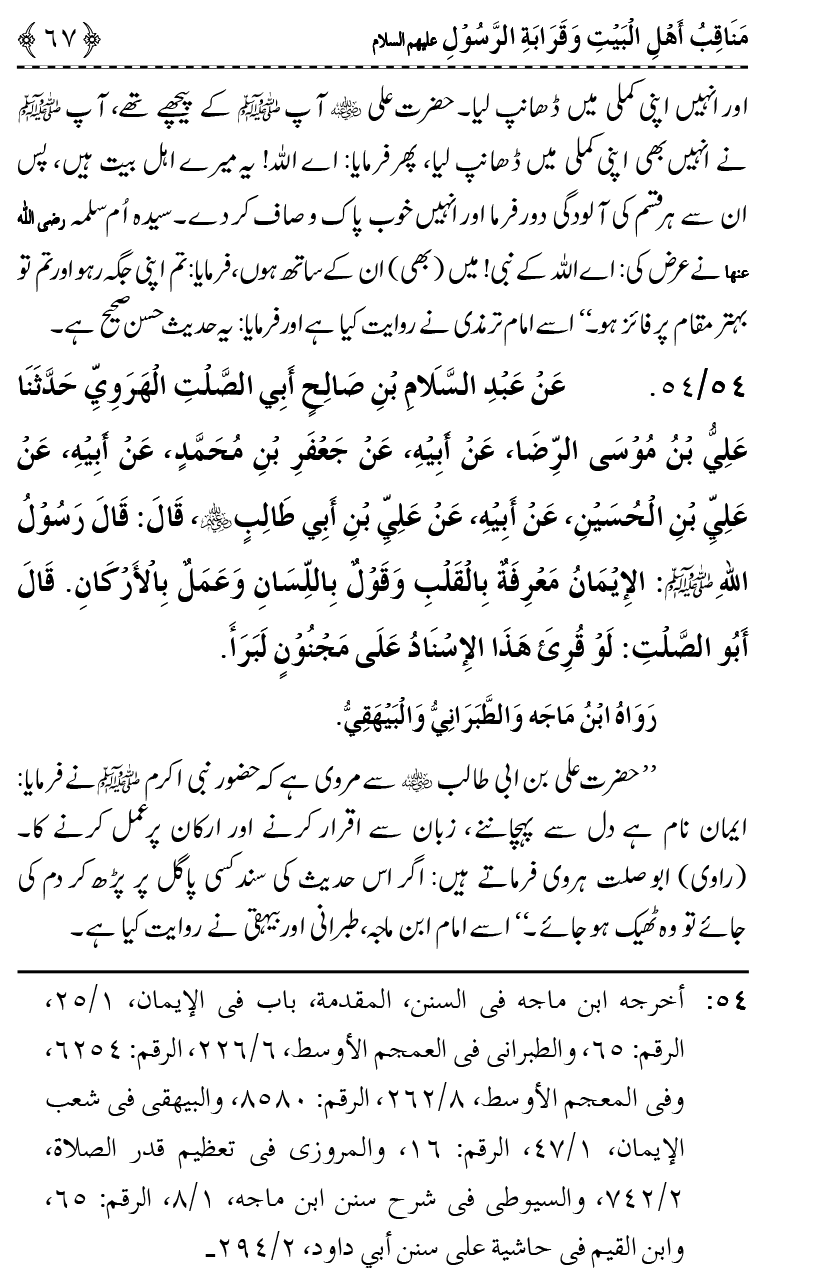 مَنَاقِبُ أَهْلِ الْبَيْتِ وَقَرَابَةِ الرَّسُوْلِ عليهم السلام ﴿٦٧﴾
اور انہیں اپنی کملی میں ڈھانپ لیا۔ حضرت علی رضی اللہ عنہ آپ ﷺ کے پیچھے تھے، آپ ﷺ
نے انہیں بھی اپنی کملی میں ڈھانپ لیا، پھر فرمایا: اے اللہ! یہ میرے اہل بیت ہیں، پس
ان سے ہر قسم کی آلودگی دور فرما اور انہیں خوب پاک و صاف کر دے۔ سیدہ اُم سلمہ رضی اللہ
عنہا نے عرض کی: اے اللہ کے نبی! میں (بھی) ان کے ساتھ ہوں، فرمایا: تم اپنی جگہ رہو اور تم تو
بہتر مقام پر فائز ہو۔‘‘ اسے امام ترمذی نے روایت کیا ہے اور فرمایا: یہ حدیث حسن صحیح ہے۔
٥٤/٥٤. عَنْ عَبْدِ السَّلَامِ بْنِ صَالِحٍ أَبِي الصَّلْتِ الْهَرَوِيِّ حَدَّثَنَا
عَلِيُّ بْنُ مُوْسَى الرِّضَا، عَنْ أَبِيْهِ، عَنْ جَعْفَرِ بْنِ مُحَمَّدٍ، عَنْ أَبِيْهِ، عَنْ
عَلِيِّ بْنِ الْحُسَيْنِ، عَنْ أَبِيْهِ، عَنْ عَلِيِّ بْنِ أَبِي طَالِبٍ رضی اللہ عنہ، قَالَ: قَالَ رَسُوْلُ
اللهِ ﷺ: الإِيْمَانُ مَعْرِفَةٌ بِالْقَلْبِ وَقَوْلٌ بِاللِّسَانِ وَعَمَلٌ بِالْأَرْكَانِ. قَالَ
أَبُو الصَّلْتِ: لَوْ قُرِئَ هَذَا الإِسْنَادُ عَلَى مَجْنُوْنٍ لَبَرَأَ.
رَوَاهُ ابْنُ مَاجَه وَالطَّبَرَانِيُّ وَالْبَيْهَقِيُّ.
’’حضرت علی بن ابی طالب رضی اللہ عنہ سے مروی ہے کہ حضور نبی اکرم ﷺ نے فرمایا:
ایمان نام ہے دل سے پہچاننے، زبان سے اقرار کرنے اور ارکان پر عمل کرنے کا۔
(راوی) ابو صلت ہروی فرماتے ہیں: اگر اس حدیث کی سند کسی پاگل پر پڑھ کر دم کی
جائے تو وہ ٹھیک ہو جائے۔‘‘ اسے امام ابن ماجہ، طبرانی اور بیہقی نے روایت کیا ہے۔
٥٤: أخرجه ابن ماجه فى السنن، المقدمة، باب فى الإيمان، ١/٢٥،
الرقم: ٦٥، والطبرانى فى العمجم الأوسط، ٦/٢٢٦، الرقم: ٦٢٥٤،
وفى المعجم الأوسط، ٨/٢٦٢، الرقم: ٨٥٨٠، والبيهقى فى شعب
الإيمان، ١/٤٧، الرقم: ١٦، والمروزى فى تعظيم قدر الصلاة،
٢/٧٤٢، والسيوطى فى شرح سنن ابن ماجه، ١/٨، الرقم: ٦٥،
وابن القيم فى حاشية على سنن أبي داود، ٢/٢٩٤۔